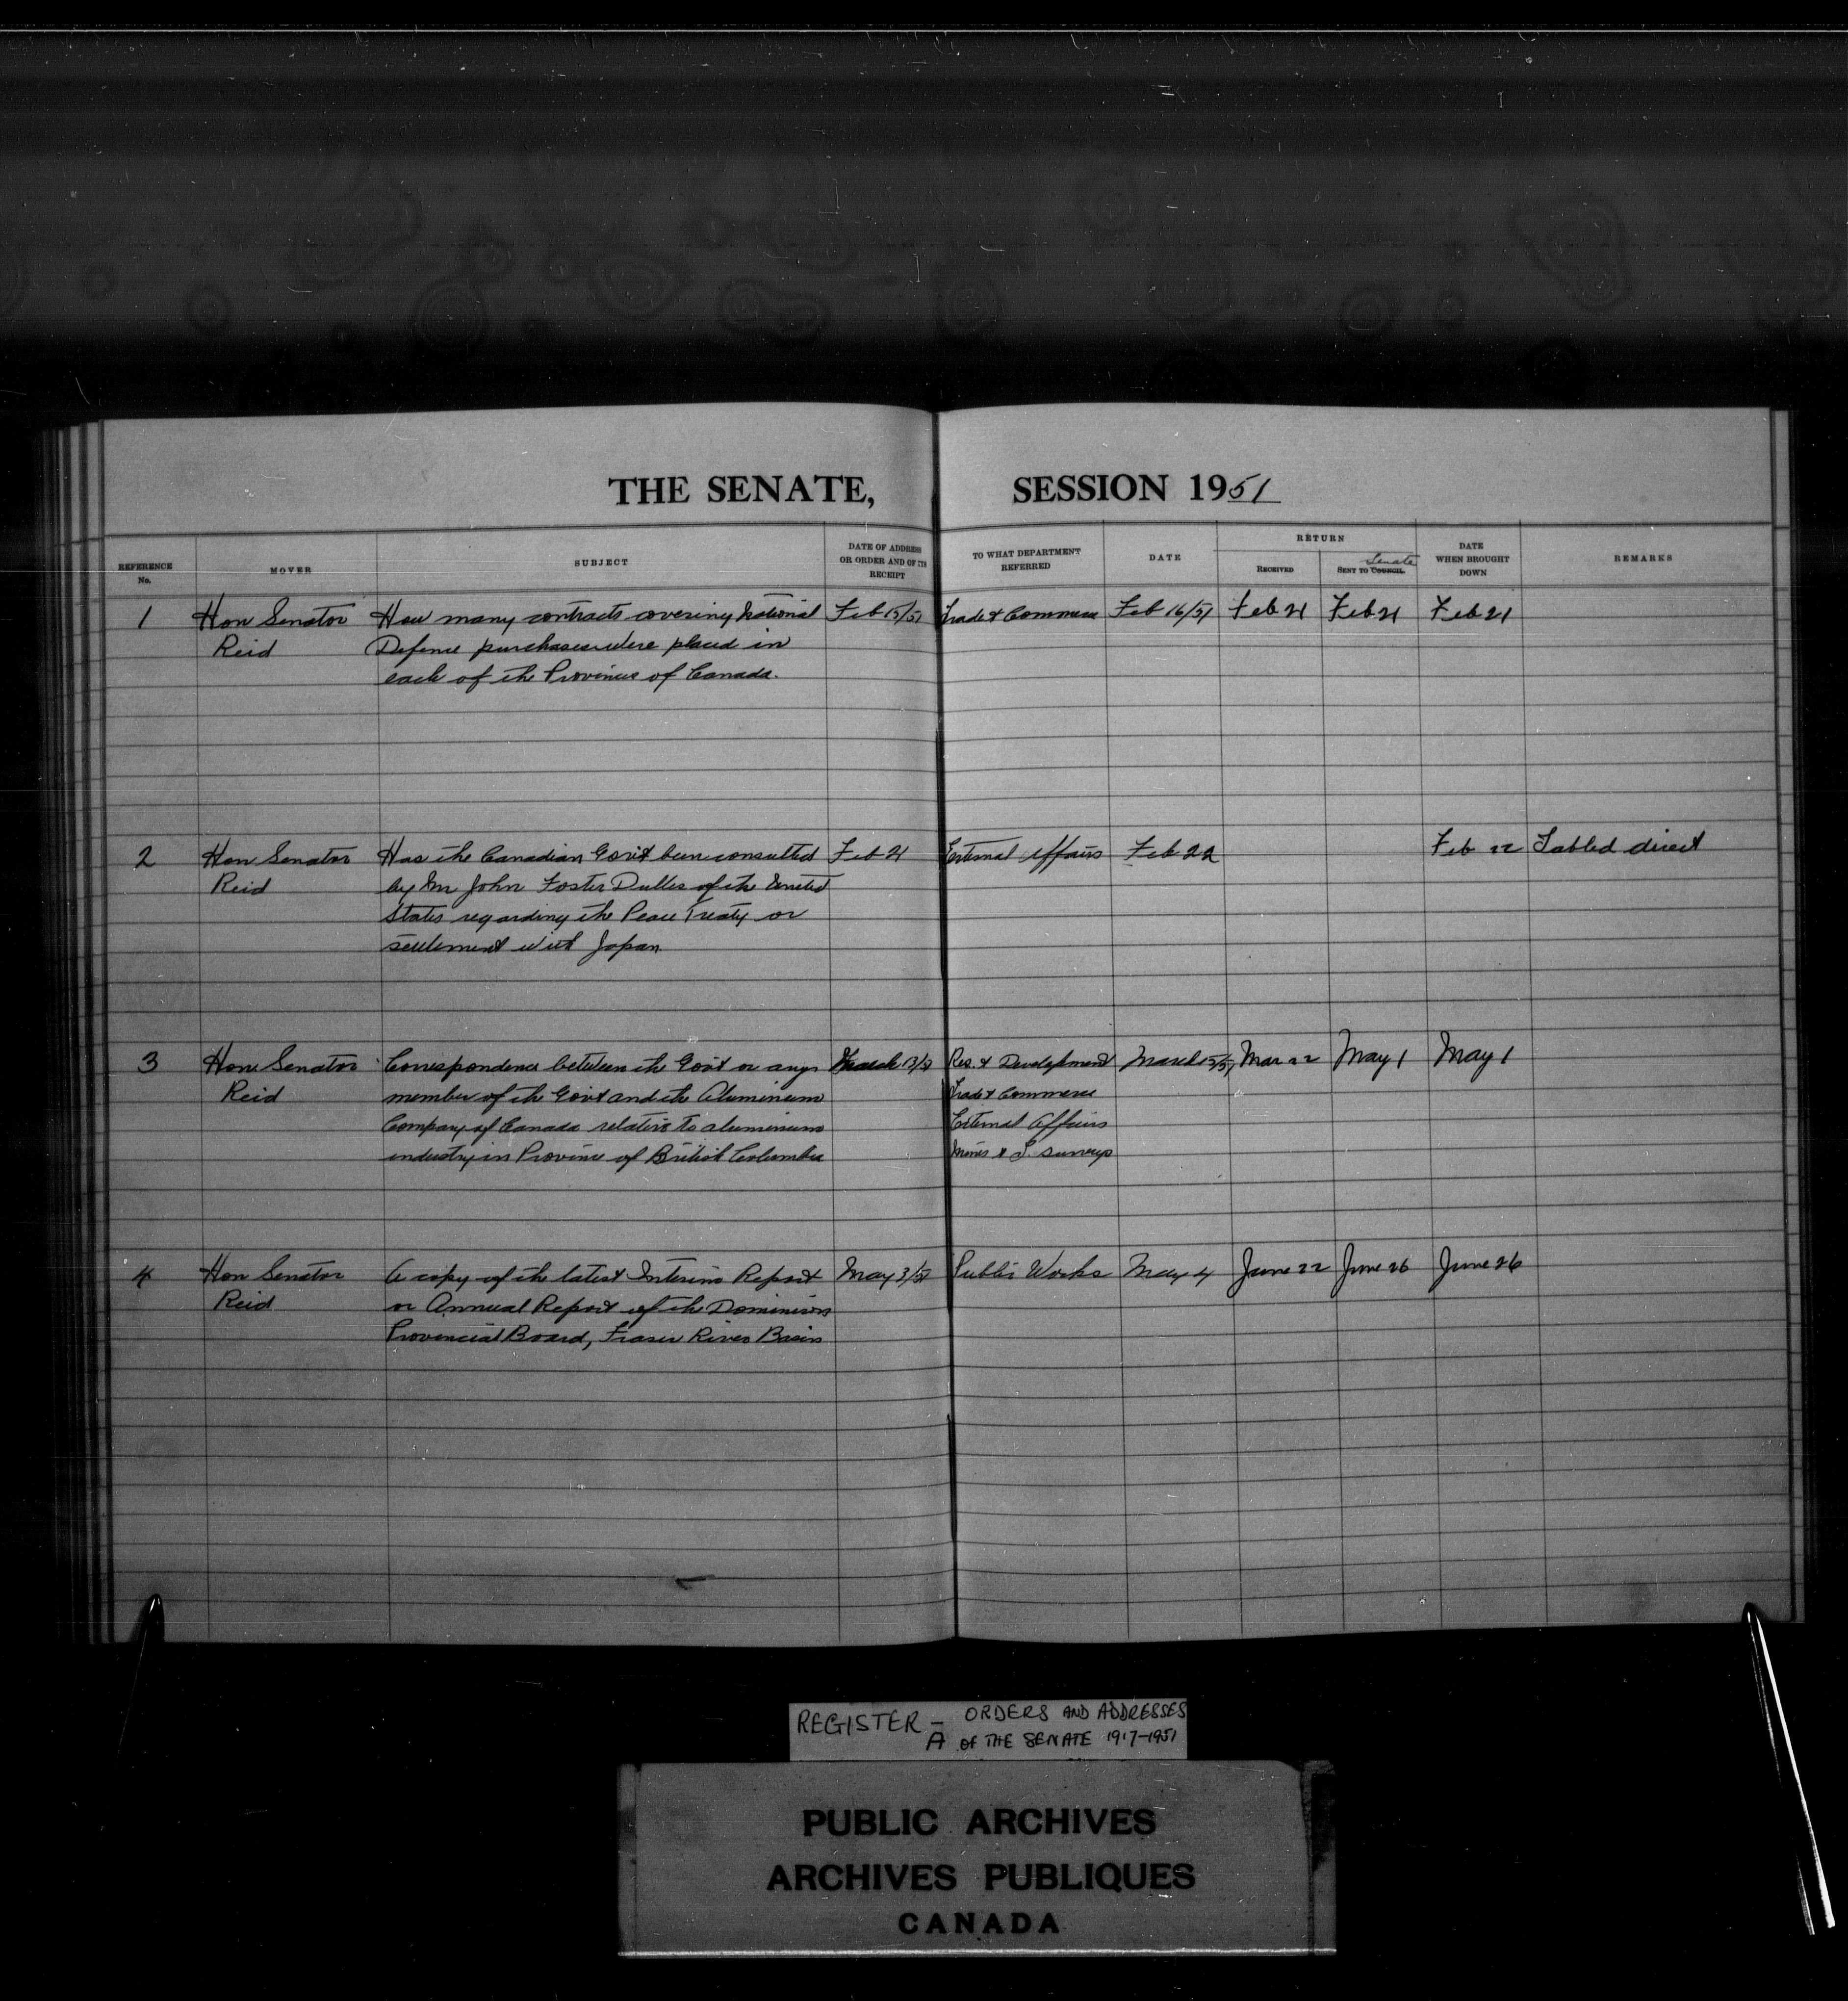 THE SENATE, SESSION 1951
REFERENCE No.
MOVER
SUBJECT
DATE OF ADDRESS OR ORDER AND OF ITS RECEIPT
TO WHAT DEPARTMENT REFERRED
DATE
RETURN
RECEIVED
SENT TO COUNCIL Senate
DATE WHEN BROUGHT DOWN
REMARKS
1 Hon Senator How many contracts covering National Feb 15/51 Trade & Commerce Feb 16/51 Feb 21 Feb 21 Feb 21
Reid Defence purchases were placed in
each of the Provinces of Canada.
2 Hon Senator Has the Canadian Gov't been consulted Feb 21 External Affairs Feb 22 Feb 22 Tabled direct
Reid by Mr John Foster Dulles of the United
States regarding the Peace Treaty or
settlement with Japan
3 Hon Senator Correspondence between the Gov't or any March 13/51 Res. & Development March 15/51 Mar 22 May 1 May 1
Reid member of the Gov't and the Aluminium Trade & Commerce
Company of Canada relative to aluminium External Affairs
industry in Province of British Columbia Mines & T. Surveys
4 Hon Senator A copy of the latest Interim Report May 3/51 Public Works May 4 June 22 June 26 June 26
Reid or Annual Report of the Dominion
Provincial Board, Fraser River Basin
REGISTER - ORDERS AND ADDRESSES
A OF THE SENATE 1917-1951
PUBLIC ARCHIVES
ARCHIVES PUBLIQUES
CANADA